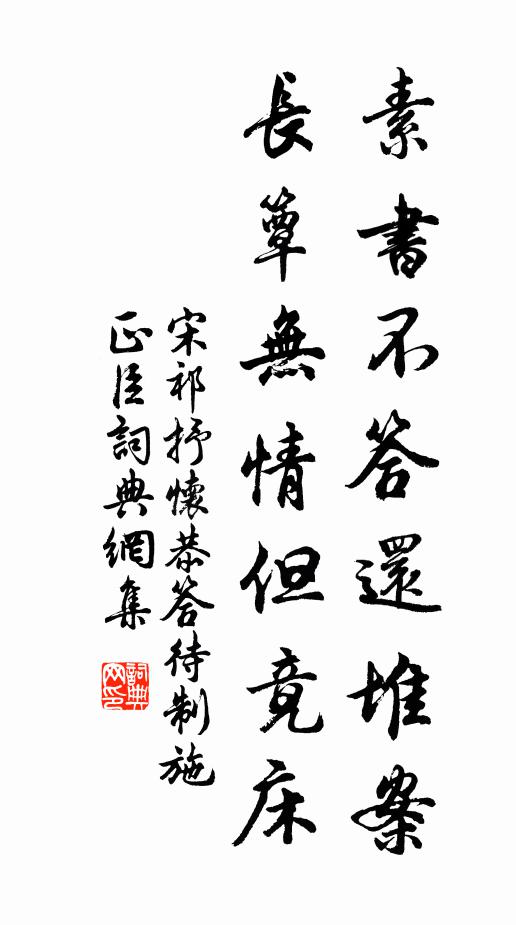 素書不答還堆案
長簟無情但竟床
宋祁抒懷恭答待制施
正臣詞典網集
詞典网印